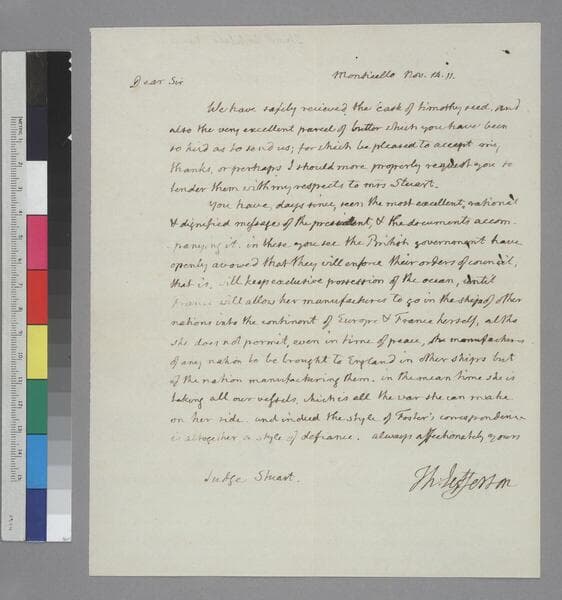 Monticello Nov. 14. 11.
Dear Sir
We have safely recieved the cask of timothy seed, and
also the very excellent parcel of butter which you have been
so kind as to send us; for which be pleased to accept my
thanks, or perhaps I should more properly request you to
tender them with my respects to mrs Stuart.
You have, days since, seen the most excellent, rational
& dignified message of the president, & the documents accom-
panying it. in these you see the British government have
openly avowed that they will enforce their orders of council,
that is, will keep exclusive possession of the ocean, until
France will allow her manufactures to go in the ships of other
nations into the continent of Europe & France herself, altho
she does not permit, even in time of peace, the manufactures
of any nation to be brought to England in other ships but
of the nation manufacturing them. in the mean time she is
taking all our vessels, which is all the war she can make
on her side. and indeed the style of Foster's correspondence
is altogether a style of defiance. always affectionately yours
Th: Jefferson
Judge Stuart.